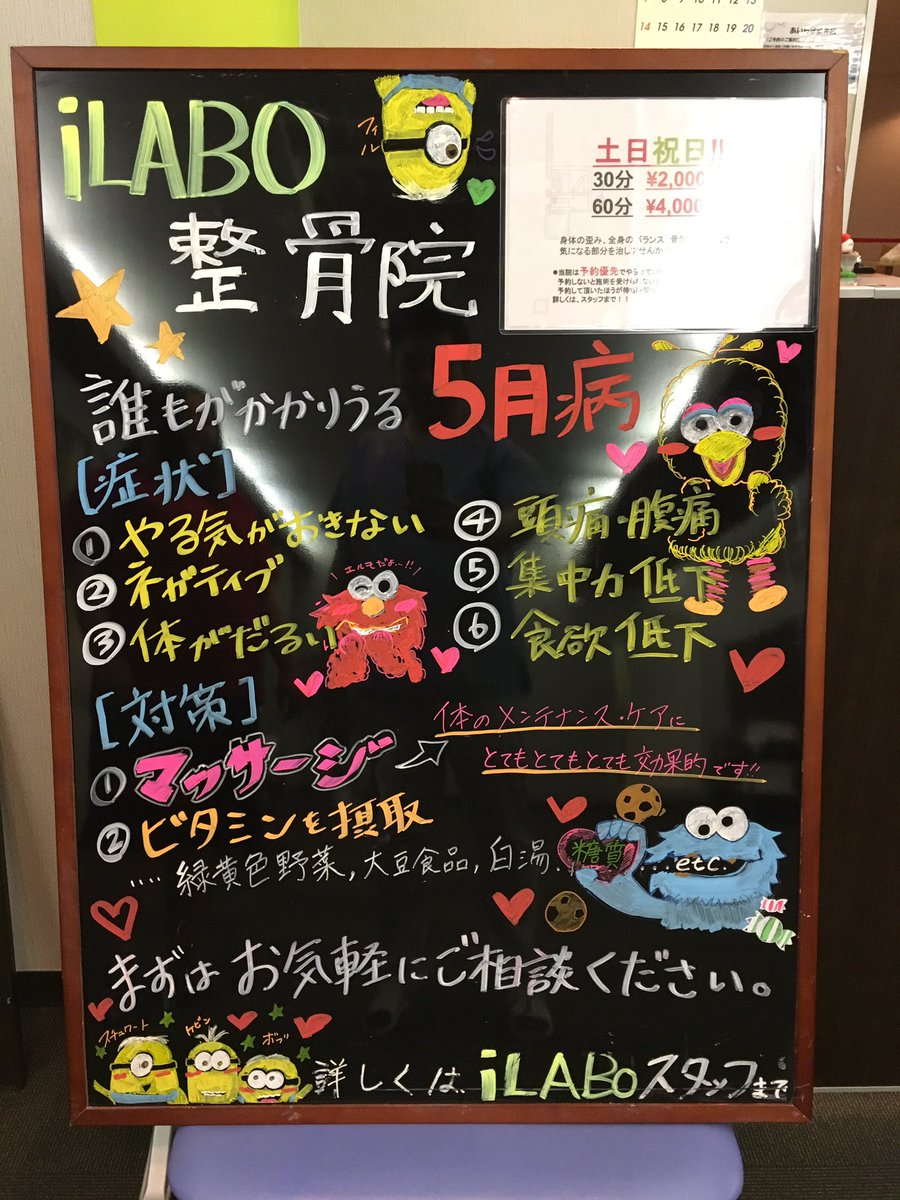 14 15 16 17 18 19 20
iLABO
フィル
整骨院
土日祝日!!
30分 ¥2,000
60分 ¥4,000
身体の歪み、全身のバランス
気になる部分を治し
●当院は予約優先で
予約しないと施術を受けられない
予約して頂いたほうが待ち
詳しくは、スタッフまで!!
誰もがかかりうる 5月病
[症状]
① やる気がおきない
② ネガティブ
③ 体がだるい
エルモだよ…!!
④ 頭痛・腹痛
⑤ 集中力低下
⑥ 食欲低下
[対策]
① マッサージ
体のメンテナンス・ケアに
とてもとてもとても効果的です!!
② ビタミンを摂取
‥‥緑黄色野菜,大豆食品,白湯,糖質...etc.
まずは お気軽にご相談ください。
スチュワート
ケビン
ボブ
詳しくは iLABOスタッフまで